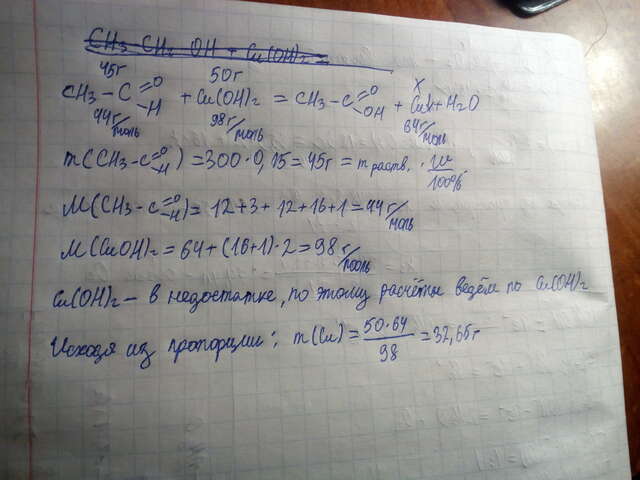 CH3 CH2 OH + Cu(OH)2 =
45г 50г
CH3-C=O-H + Cu(OH)2 = CH3-C=O-OH + Cu + H2O
44г/моль 98г/моль x 64г/моль
m(CH3-C=O-H) = 300·0,15 = 45г = m раств. · W/100%
M(CH3-C=O-H) = 12+3+12+16+1 = 44 г/моль
M(CuOH)2 = 64+(16+1)·2 = 98 г/моль
Cu(OH)2 - в недостатке, по этому расчёты ведём по Cu(OH)2
Исходя из пропорции: m(Cu) = 50·64/98 = 32,65г